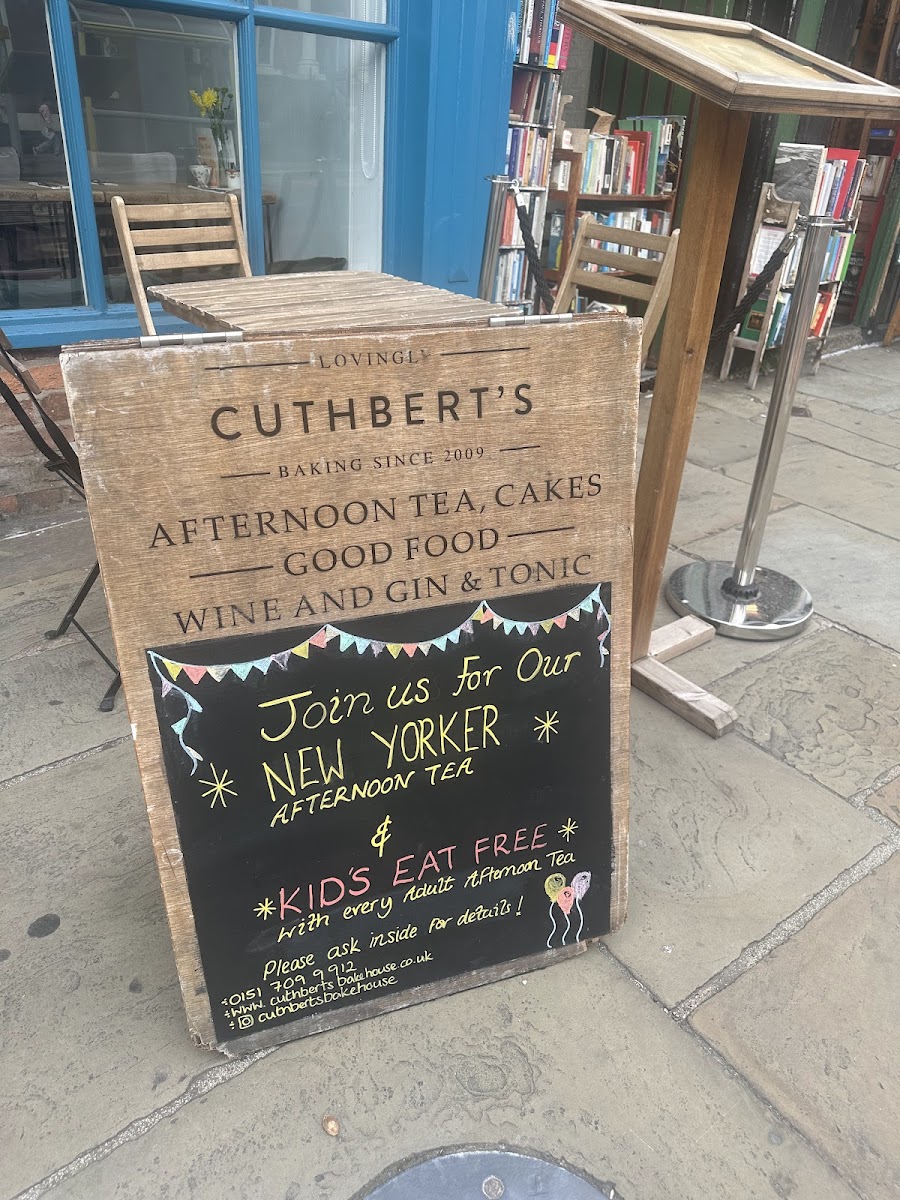 LOVINGLY
CUTHBERT'S
BAKING SINCE 2009
AFTERNOON TEA, CAKES
GOOD FOOD
WINE AND GIN & TONIC
Join us For Our
NEW YORKER
AFTERNOON TEA
&
*KID'S EAT FREE*
with every Adult Afternoon Tea
Please ask inside for details!
:0151 709 9912
:www.cuthbertsbakehouse.co.uk
: cuthbertsbakehouse